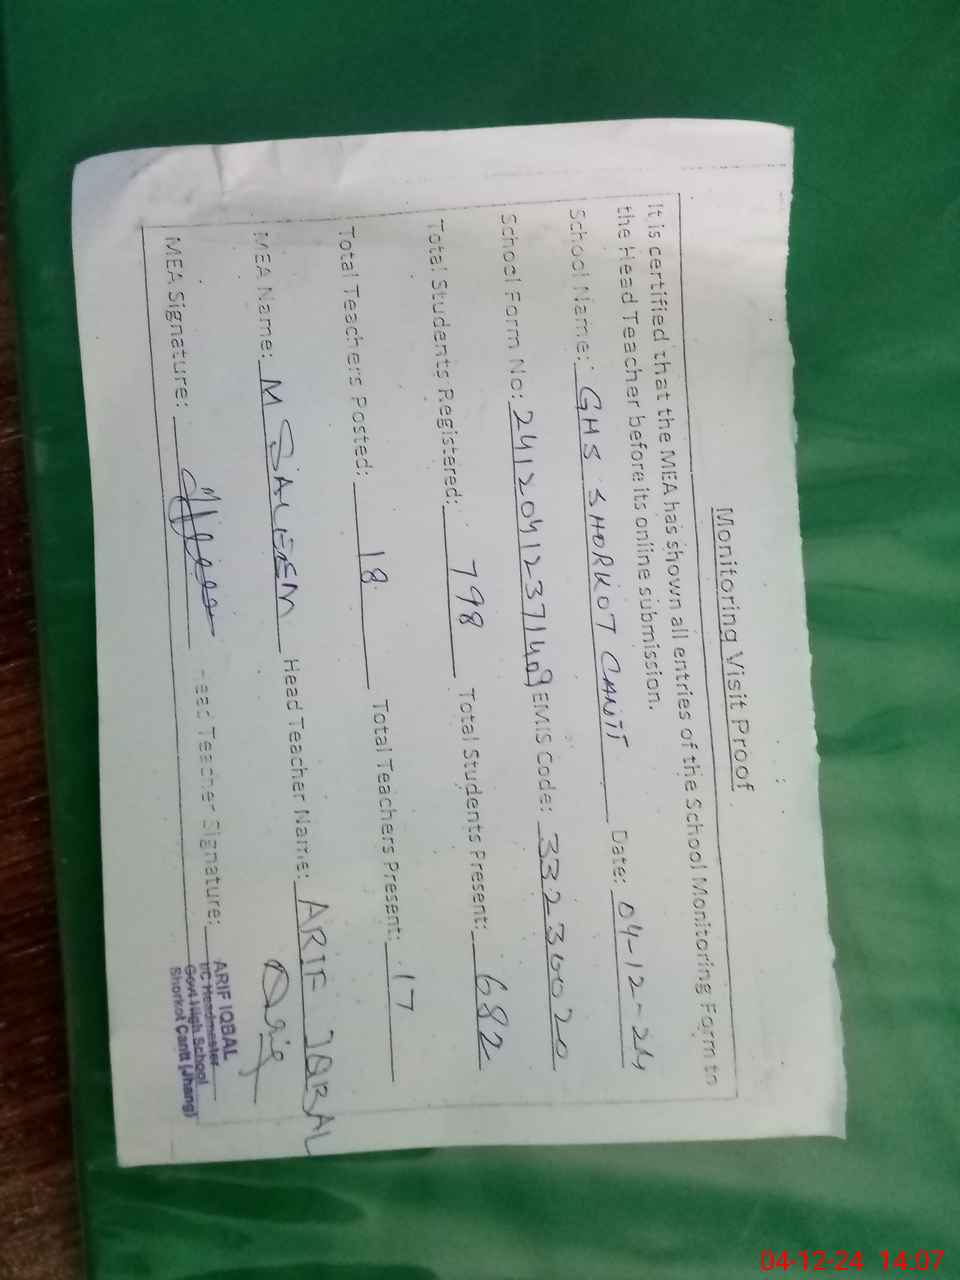 Monitoring Visit Proof
It is certified that the MEA has shown all entries of the School Monitoring Form to
the Head Teacher before its online submission.
School Name: GHS SHORKOT CANTT Date: 04-12-24
School Form No: 24120412371409 EMIS Code: 33230020
Total Students Registered: 798 Total Students Present: 682
Total Teachers Posted: 18 Total Teachers Present: 17
MEA Name: M SALEEM Head Teacher Name: ARIF IQBAL
MEA Signature: Head Teacher Signature:
ARIF IQBAL
I/C Headmaster
Govt High School
Shorkot Cantt (Jhang)
04-12-24 14:07